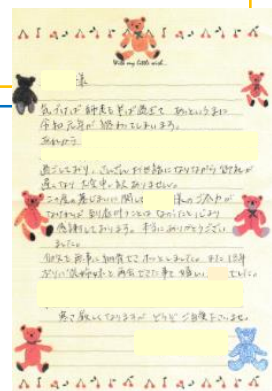 With my little wish...
様
気づけば師走も半ば過ぎて あっという間に
令和元年が終わってしまいます。
過ごしており、さんざんお世話になりながら御礼が
遅くなり 大変申し訳ありません。
この度の墓じまいに関し 様のご尽力が
なければ 到底叶うことは なかったと 心より
感謝しております。本当にありがとうござい
ました。
も無事に納骨できてホッとしました。また
ぶりに 再会できた事も嬉しい でした。
寒さ厳しくなりますが どうぞご自愛下さいませ。